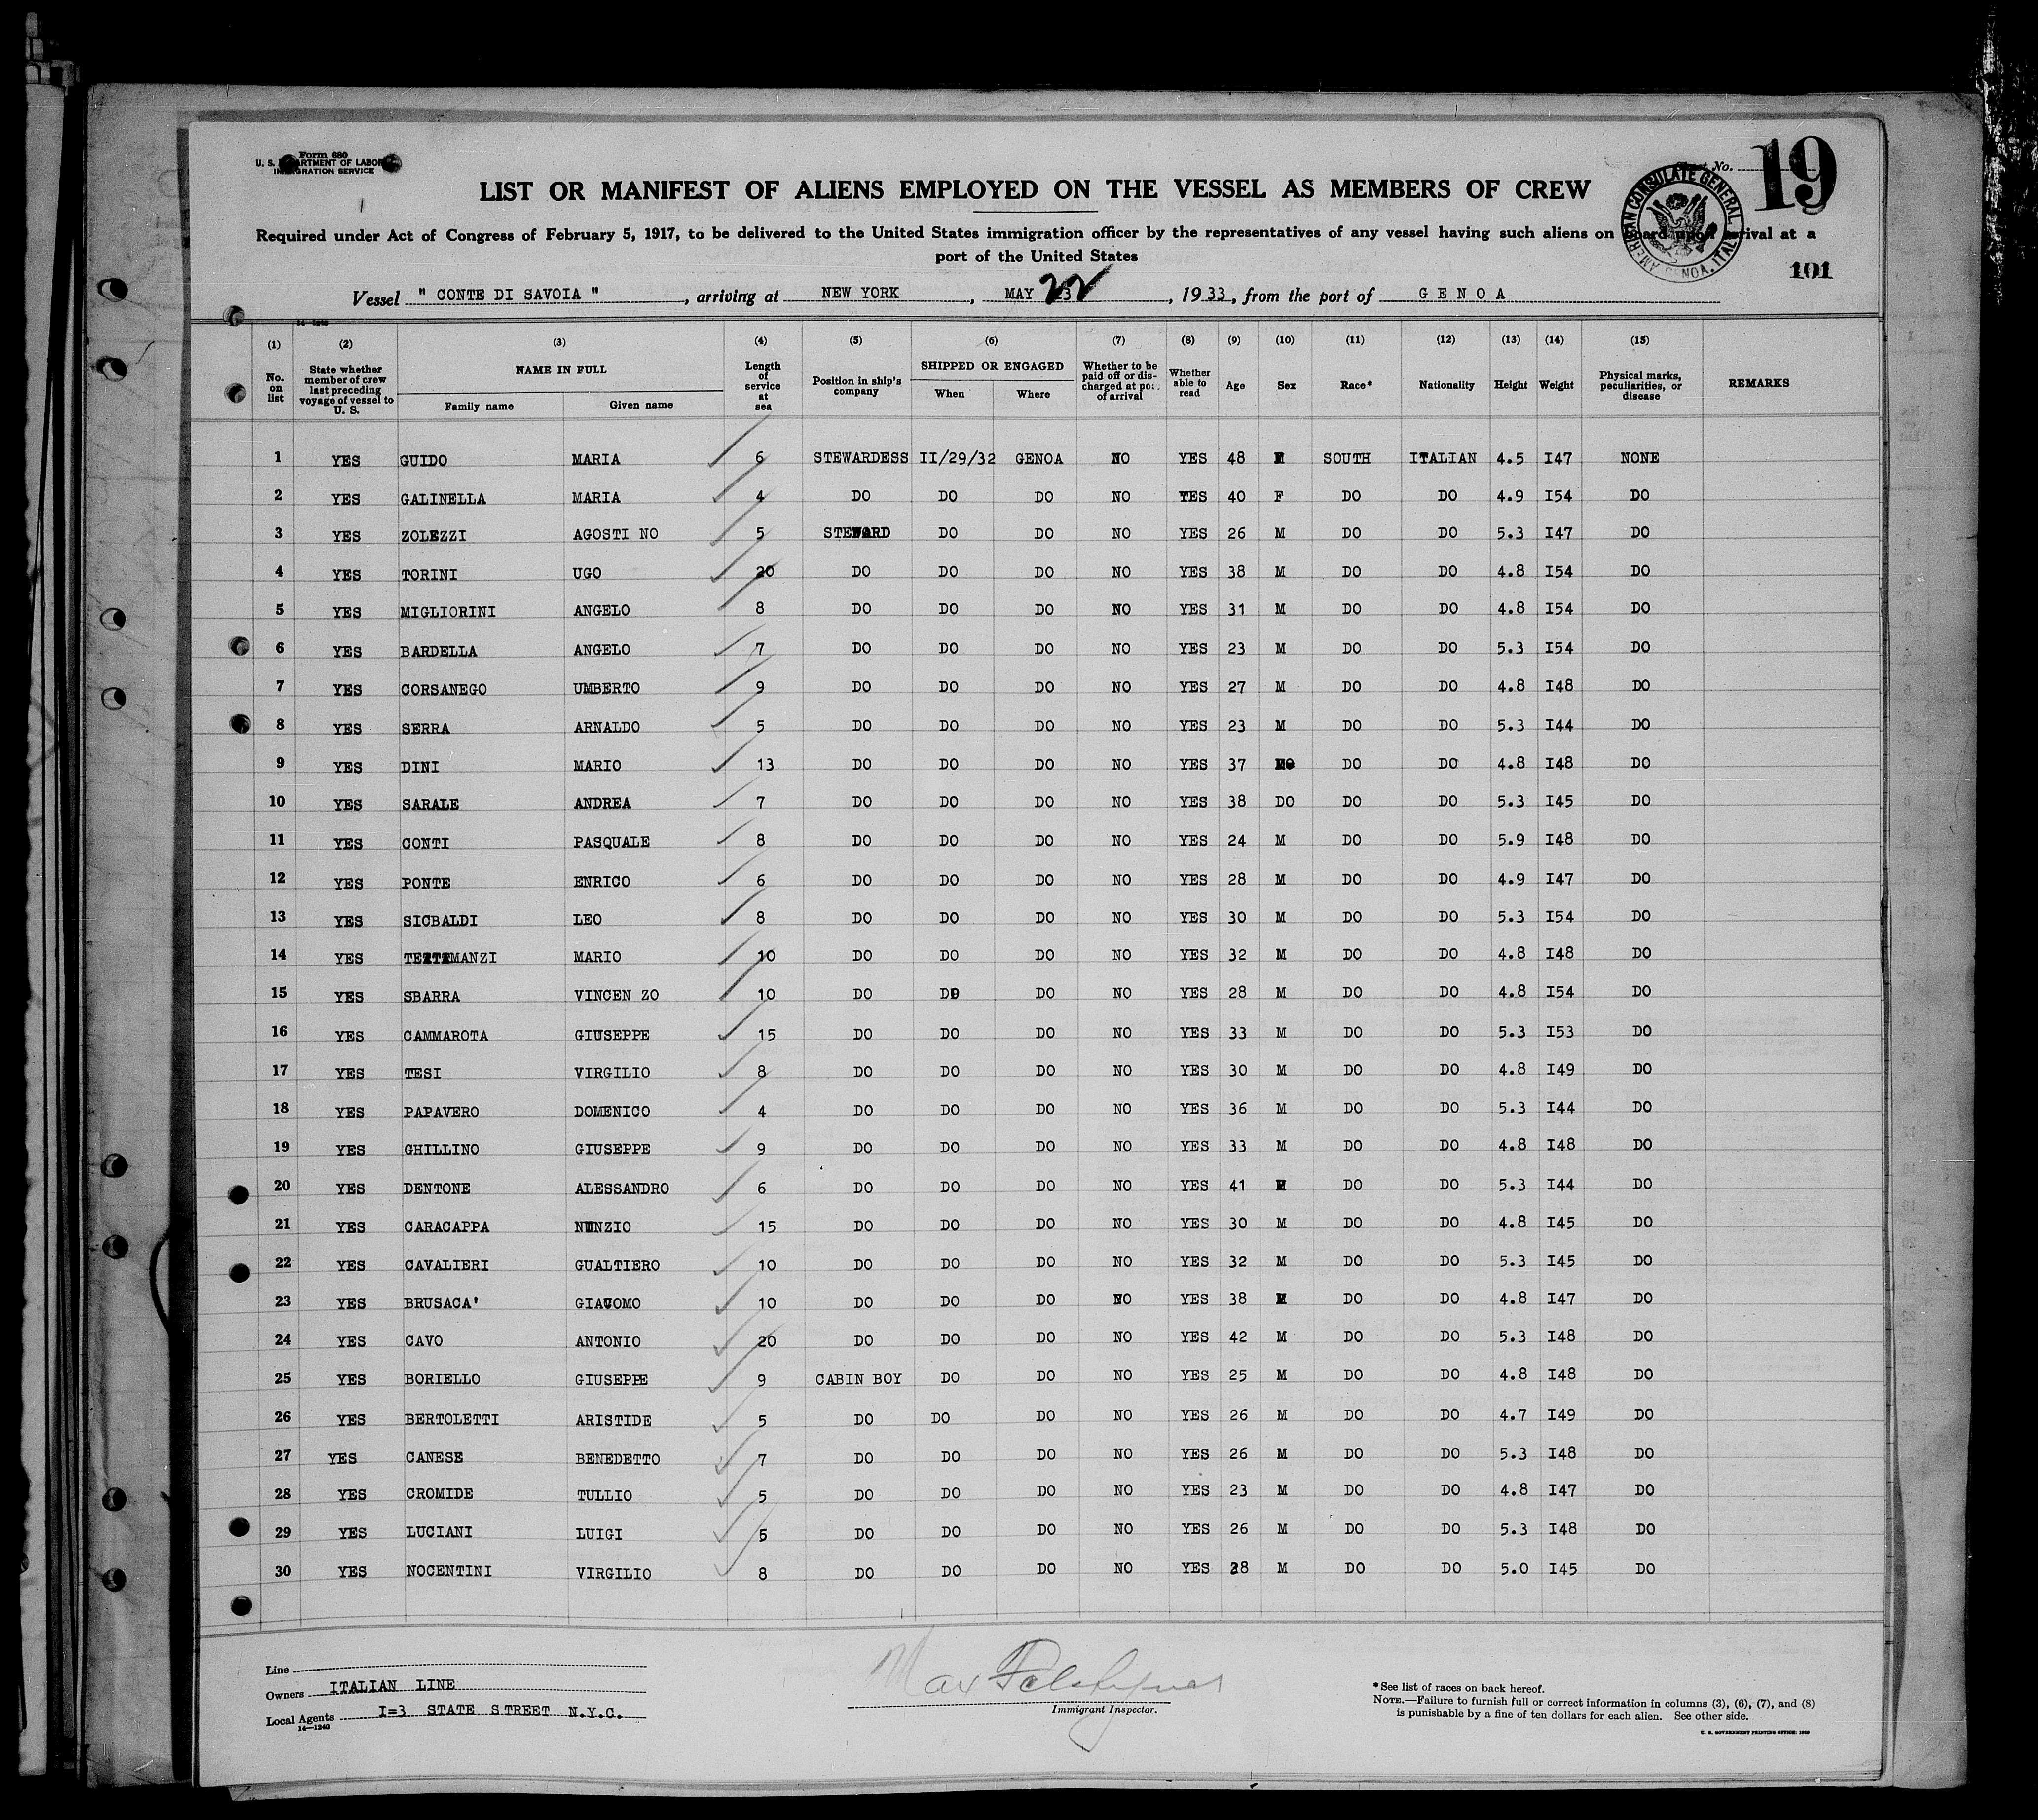 Form 680
U. S. DEPARTMENT OF LABOR
IMMIGRATION SERVICE
Sheet No.
19
LIST OR MANIFEST OF ALIENS EMPLOYED ON THE VESSEL AS MEMBERS OF CREW
AMERICAN CONSULATE GENERAL
GENOA, ITALY
Required under Act of Congress of February 5, 1917, to be delivered to the United States immigration officer by the representatives of any vessel having such aliens on board upon arrival at a
port of the United States
101
Vessel " CONTE DI SAVOIA ", arriving at NEW YORK, MAY 22, 1933, from the port of GENOA
14—1240
(1) (2) (3) (4) (5) (6) (7) (8) (9) (10) (11) (12) (13) (14) (15)
No. on list State whether member of crew last preceding voyage of vessel to U. S. NAME IN FULL Family name Given name Length of service at sea Position in ship's company SHIPPED OR ENGAGED When Where Whether to be paid off or discharged at port of arrival Whether able to read Age Sex Race* Nationality Height Weight Physical marks, peculiarities, or disease REMARKS
1 YES GUIDO MARIA 6 STEWARDESS II/29/32 GENOA NO YES 48 SOUTH ITALIAN 4.5 I47 NONE
2 YES GALINELLA MARIA 4 DO DO DO NO YES 40 F DO DO 4.9 I54 DO
3 YES ZOLEZZI AGOSTI NO 5 STEWARD DO DO NO YES 26 M DO DO 5.3 I47 DO
4 YES TORINI UGO 20 DO DO DO NO YES 38 M DO DO 4.8 I54 DO
5 YES MIGLIORINI ANGELO 8 DO DO DO NO YES 31 M DO DO 4.8 I54 DO
6 YES BARDELLA ANGELO 7 DO DO DO NO YES 23 M DO DO 5.3 I54 DO
7 YES CORSANEGO UMBERTO 9 DO DO DO NO YES 27 M DO DO 4.8 I48 DO
8 YES SERRA ARNALDO 5 DO DO DO NO YES 23 M DO DO 5.3 I44 DO
9 YES DINI MARIO 13 DO DO DO NO YES 37 DO DO 4.8 I48 DO
10 YES SARALE ANDREA 7 DO DO DO NO YES 38 DO DO DO 5.3 I45 DO
11 YES CONTI PASQUALE 8 DO DO DO NO YES 24 M DO DO 5.9 I48 DO
12 YES PONTE ENRICO 6 DO DO DO NO YES 28 M DO DO 4.9 I47 DO
13 YES SICBALDI LEO 8 DO DO DO NO YES 30 M DO DO 5.3 I54 DO
14 YES TETTAMANZI MARIO 10 DO DO DO NO YES 32 M DO DO 4.8 I48 DO
15 YES SBARRA VINCEN ZO 10 DO DO DO NO YES 28 M DO DO 4.8 I54 DO
16 YES CAMMAROTA GIUSEPPE 15 DO DO DO NO YES 33 M DO DO 5.3 I53 DO
17 YES TESI VIRGILIO 8 DO DO DO NO YES 30 M DO DO 4.8 I49 DO
18 YES PAPAVERO DOMENICO 4 DO DO DO NO YES 36 M DO DO 5.3 I44 DO
19 YES GHILLINO GIUSEPPE 9 DO DO DO NO YES 33 M DO DO 4.8 I48 DO
20 YES DENTONE ALESSANDRO 6 DO DO DO NO YES 41 M DO DO 5.3 I44 DO
21 YES CARACAPPA NUNZIO 15 DO DO DO NO YES 30 M DO DO 4.8 I45 DO
22 YES CAVALIERI GUALTIERO 10 DO DO DO NO YES 32 M DO DO 5.3 I45 DO
23 YES BRUSACA' GIACOMO 10 DO DO DO NO YES 38 M DO DO 4.8 I47 DO
24 YES CAVO ANTONIO 20 DO DO DO NO YES 42 M DO DO 5.3 I48 DO
25 YES BORIELLO GIUSEPPE 9 CABIN BOY DO DO NO YES 25 M DO DO 4.8 I48 DO
26 YES BERTOLETTI ARISTIDE 5 DO DO DO NO YES 26 M DO DO 4.7 I49 DO
27 YES CANESE BENEDETTO 7 DO DO DO NO YES 26 M DO DO 5.3 I48 DO
28 YES CROMIDE TULLIO 5 DO DO DO NO YES 23 M DO DO 4.8 I47 DO
29 YES LUCIANI LUIGI 5 DO DO DO NO YES 26 M DO DO 5.3 I48 DO
30 YES NOCENTINI VIRGILIO 8 DO DO DO NO YES 28 M DO DO 5.0 I45 DO
Line
Owners ITALIAN LINE
Local Agents I=3 STATE STREET N.Y.C.
14—1240
Max
Immigrant Inspector.
*See list of races on back hereof.
NOTE.—Failure to furnish full or correct information in columns (3), (6), (7), and (8)
is punishable by a fine of ten dollars for each alien. See other side.
U. S. GOVERNMENT PRINTING OFFICE: